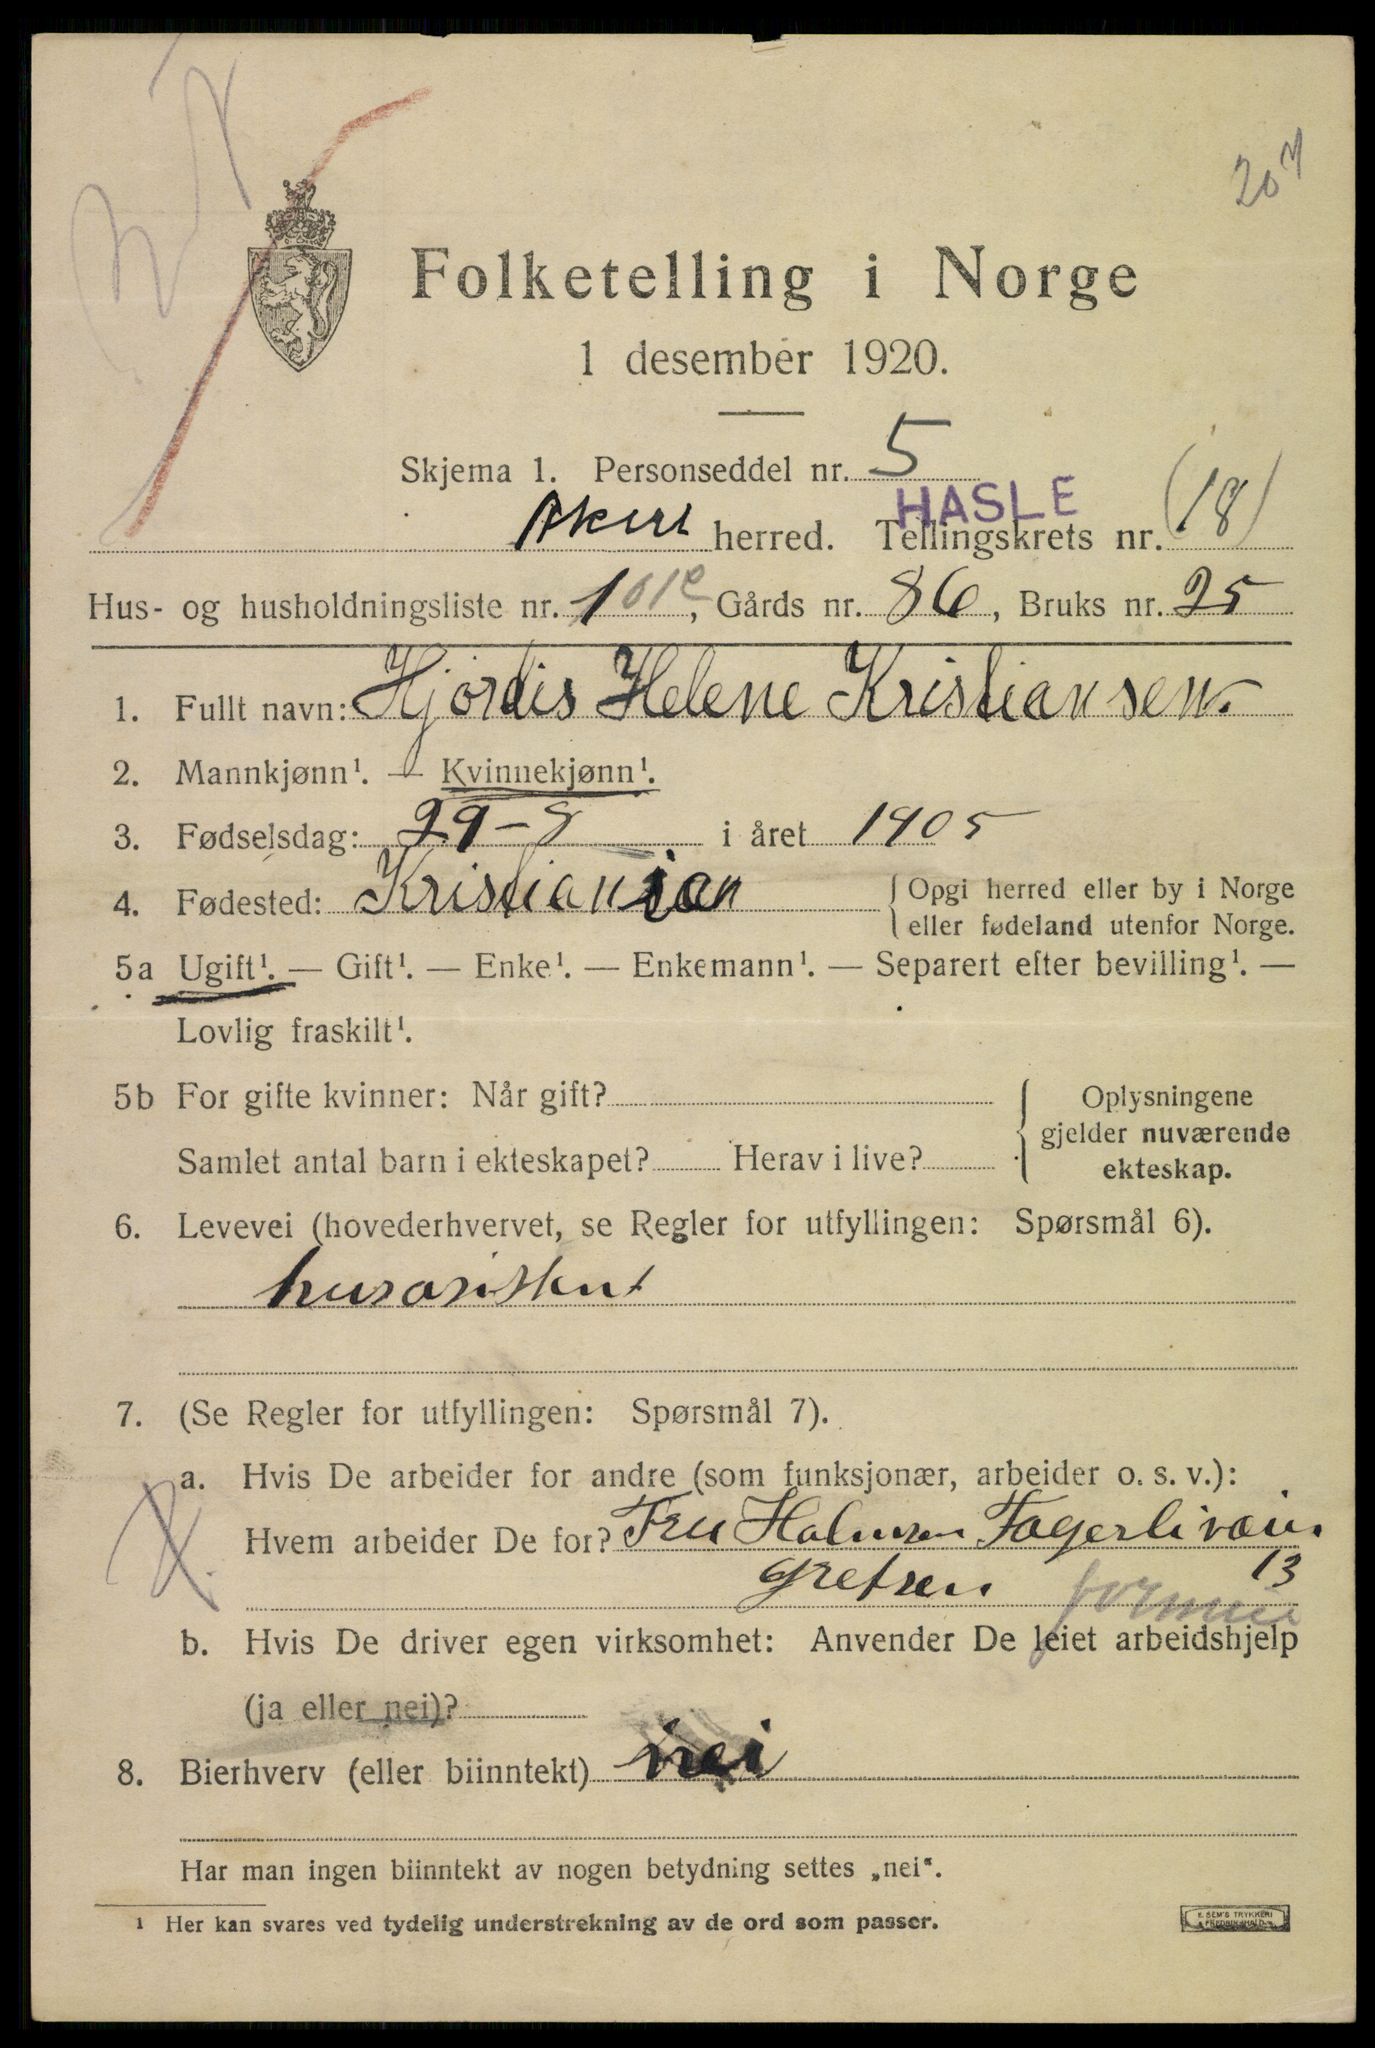 207
Folketelling i Norge
1 desember 1920.
Skjema 1. Personseddel nr. 5
HASLE
Akers herred. Tellingskrets nr. (18)
Hus- og husholdningsliste nr. 101e, Gårds nr. 86, Bruks nr. 25
1. Fullt navn: Hjørdis Helene Kristiansen.
2. Mannkjønn¹. — Kvinnekjønn¹.
3. Fødselsdag: 29-8 i året 1905
4. Fødested: Kristianian { Opgi herred eller by i Norge
eller fødeland utenfor Norge.
5a Ugift¹. — Gift¹. — Enke¹. — Enkemann¹. — Separert efter bevilling¹. —
Lovlig fraskilt¹.
5b For gifte kvinner: Når gift?
Samlet antal barn i ekteskapet? Herav i live?
{ Oplysningene
gjelder nuværende
ekteskap.
6. Levevei (hovederhvervet, se Regler for utfyllingen: Spørsmål 6).
husasistent
7. (Se Regler for utfyllingen: Spørsmål 7).
a. Hvis De arbeider for andre (som funksjonær, arbeider o. s. v.):
Hvem arbeider De for? Fru Holmsen Fagerliveien
Grefsen 13
b. Hvis De driver egen virksomhet: Anvender De leiet arbeidshjelp
(ja eller nei)?
8. Bierhverv (eller biinntekt) nei
Har man ingen biinntekt av nogen betydning settes „nei“.
¹ Her kan svares ved tydelig understrekning av de ord som passer.
E. SEM'S TRYKKERI
FREDRIKSHALD